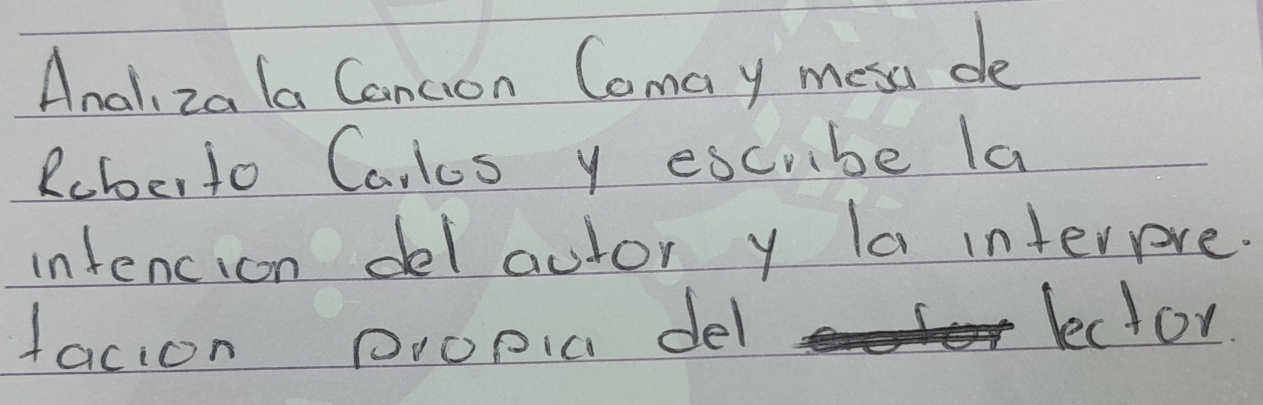 Analiza la Cancion Cama y mesa de
Roberto Carlos y escribe la
intencion del autor y la interpre-
tacion propia del lector.